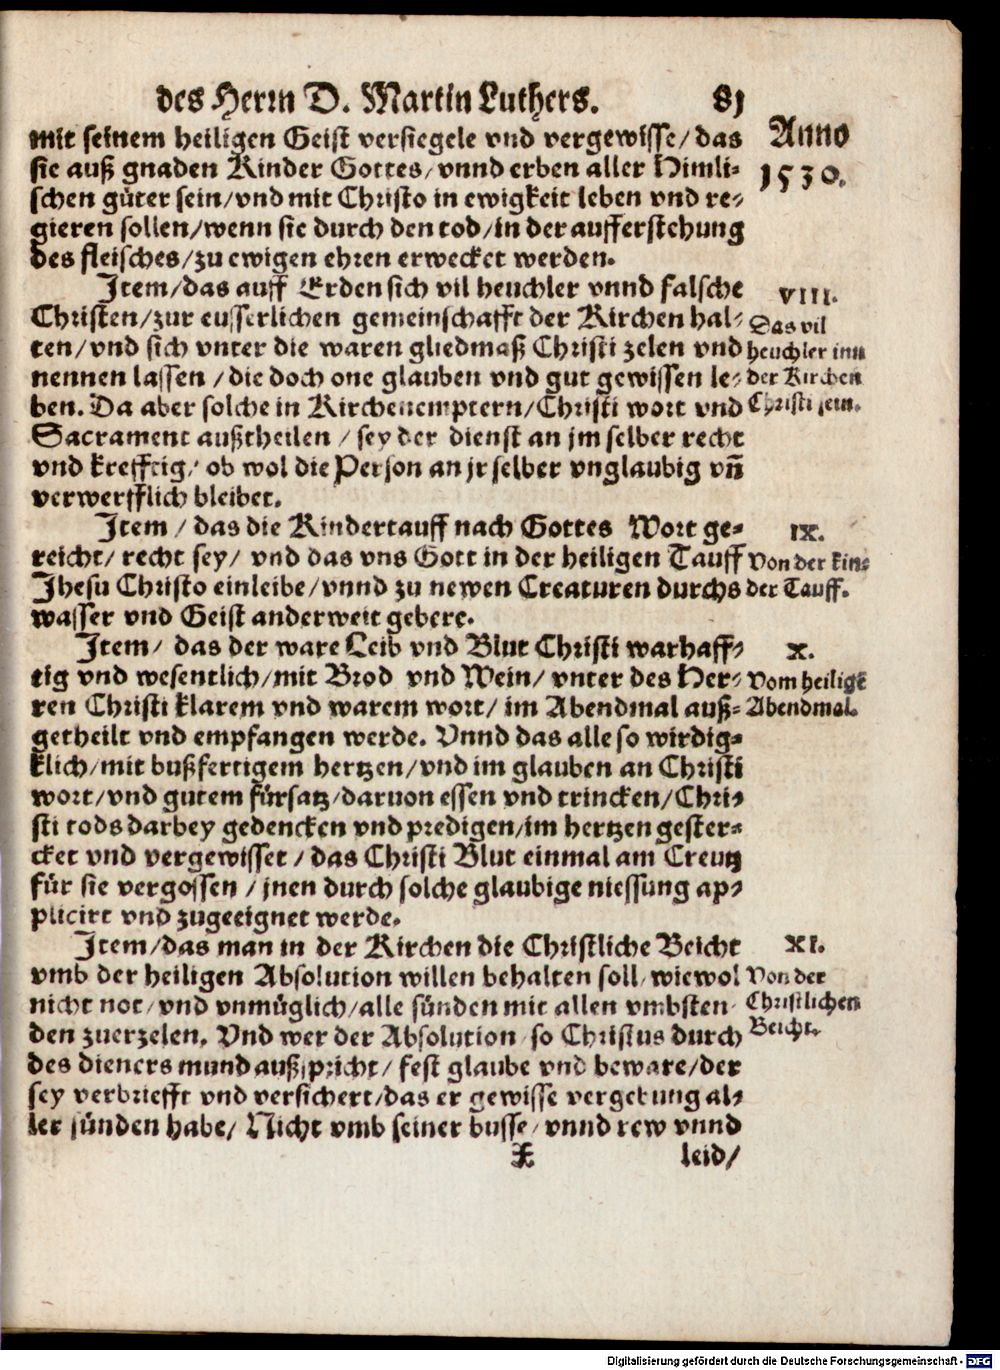 des Herrn D. Martin Luthers. 81
mit seinem heiligen Geist versiegele vnd vergewisse/ das
sie auß gnaden Kinder Gottes/ vnnd erben aller Himli⸗
schen güter sein/ vnd mit Christo in ewigkeit leben vnd re⸗
gieren sollen/ wenn sie durch den tod/ in der aufferstehung
des fleisches/ zu ewigen ehren erwecket werden.
Anno
1530.
Item/ das auff Erden sich vil heuchler vnnd falsche
Christen/ zur eusserlichen gemeinschafft der Kirchen hal⸗
ten/ vnd sich vnter die waren gliedmaß Christi zelen vnd
nennen lassen/ die doch one glauben vnd gut gewissen le⸗
ben. Da aber solche in Kirchenemptern/ Christi wort vnd
Sacrament außtheilen/ sey der dienst an jm selber recht
vnd krefftig/ ob wol die Person an jr selber vnglaubig vñ
verwerfflich bleibet.
VIII.
Das vil
heuchler inn
der Kirchen
Christi sein.
Item/ das die Kindertauff nach Gottes Wort ge⸗
reicht/ recht sey/ vnd das vns Gott in der heiligen Tauff
Jhesu Christo einleibe/ vnnd zu newen Creaturen durchs
wasser vnd Geist anderweit gebere.
IX.
Von der kin⸗
der Tauff.
Item/ das der ware Leib vnd Blut Christi warhaff⸗
tig vnd wesentlich/ mit Brod vnd Wein/ vnter des Her⸗
ren Christi klarem vnd warem wort/ im Abendmal auß⸗
getheilt vnd empfangen werde. Vnnd das alle so wirdig⸗
klich/ mit bußfertigem hertzen/ vnd im glauben an Christi
wort/ vnd gutem fürsatz/ daruon essen vnd trincken/ Chri⸗
sti tods darbey gedencken vnd predigen/ im hertzen gester⸗
cket vnd vergewisset/ das Christi Blut einmal am Creutz
für sie vergossen/ jnen durch solche glaubige niessung ap⸗
plicirt vnd zugeeignet werde.
X.
Vom heilige
Abendmal.
Item/ das man in der Kirchen die Christliche Beicht
vmb der heiligen Absolution willen behalten soll/ wiewol
nicht not/ vnd vnmüglich/ alle sünden mit allen vmbsten⸗
den zuerzelen. Vnd wer der Absolution/ so Christus durch
des dieners mund außspricht/ fest glaube vnd beware/ der
sey verbriefft vnd versichert/ das er gewisse vergebung al⸗
ler sünden habe/ Nicht vmb seiner busse/ vnnd rew vnnd
XI.
Von der
Christlichen
Beicht.
X leid/
Digitalisierung gefördert durch die Deutsche Forschungsgemeinschaft - DFG